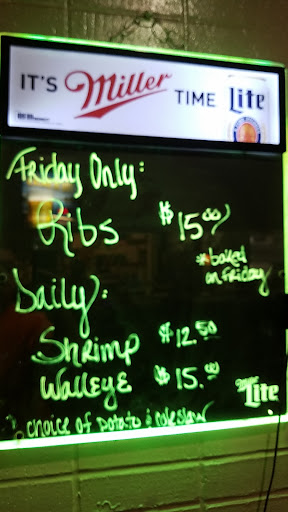 IT'S Miller TIME Lite
Friday Only:
Ribs $15.00
* baked
on Friday
Daily:
Shrimp $12.50
Walleye $15.00
choice of potato & coleslaw
Miller Lite